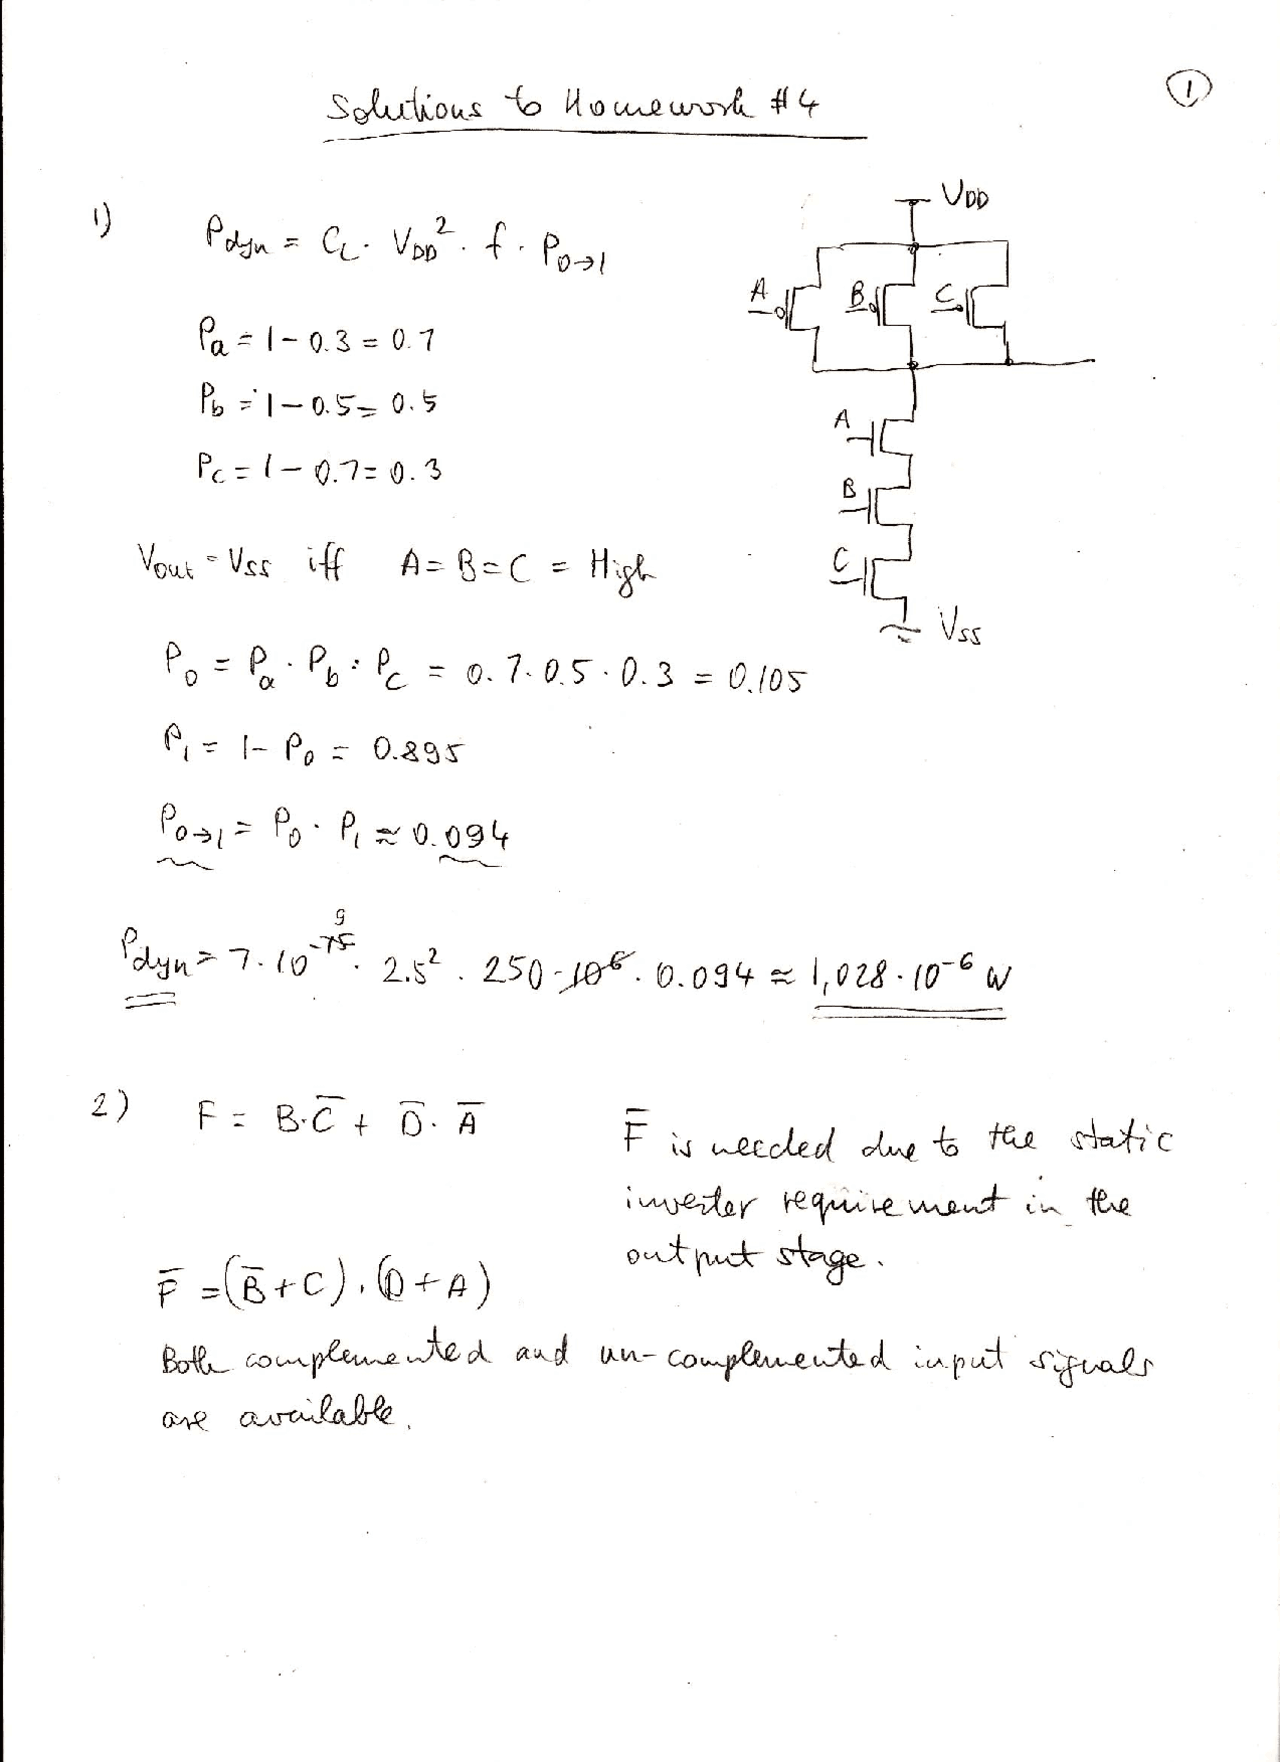 Solutions to Homework #4
1
1) Pdyn = CL · VDD² · f · P0→1
VDD
Pa = 1 - 0.3 = 0.7
A B C
Pb = 1 - 0.5 = 0.5
A
Pc = 1 - 0.7 = 0.3
B
Vout = Vss iff A = B = C = High
C
Vss
P0 = Pa · Pb · Pc = 0.7 · 0.5 · 0.3 = 0.105
P1 = 1 - P0 = 0.895
P0→1 = P0 · P1 ≈ 0.094
9
Pdyn = 7 · 10^-15 · 2.5² · 250 · 10^6 · 0.094 ≈ 1,028 · 10^-6 W
2) F = B·C̅ + D̅·A̅
F̅ is needed due to the static
inverter requirement in the
output stage.
F̅ = (B̅ + C) · (D + A)
Both complemented and un-complemented input signals
are available.